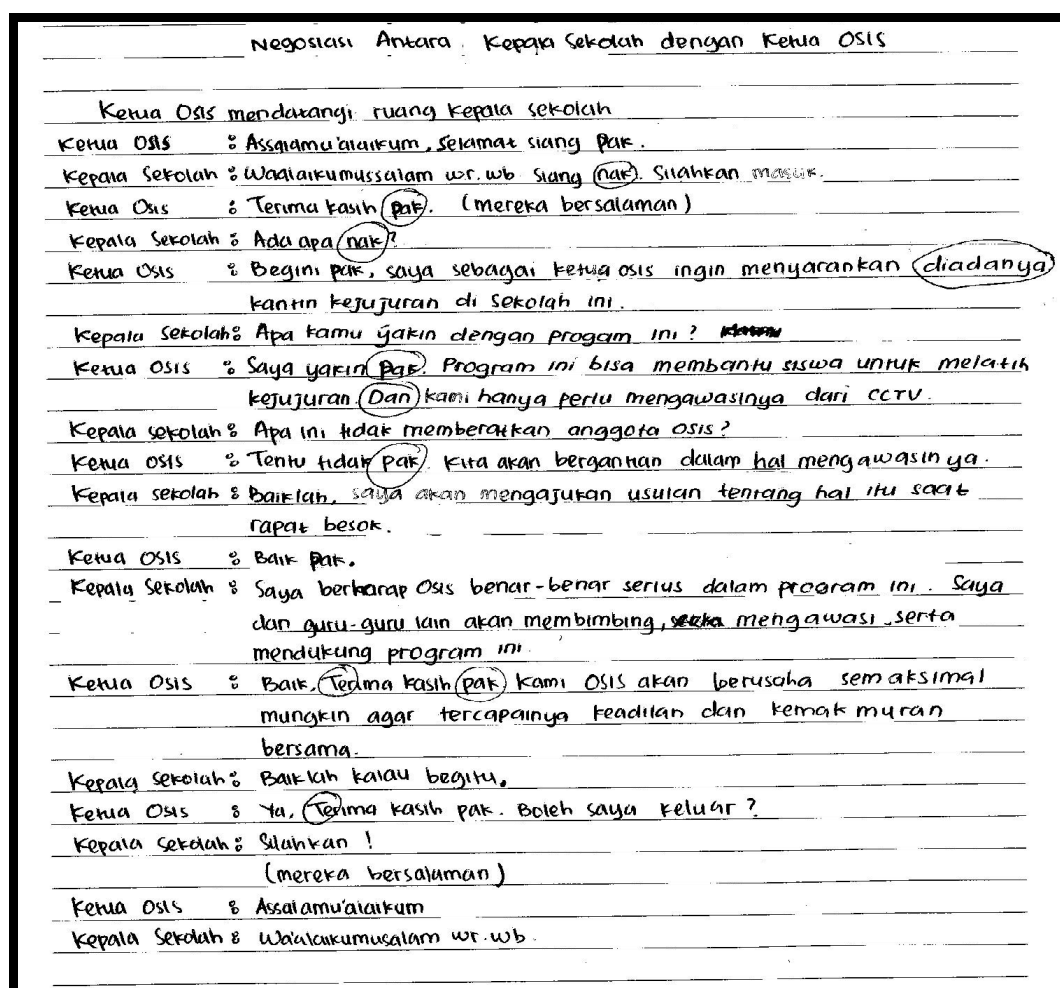 Negosiasi Antara Kepala Sekolah dengan Ketua OSIS
Ketua Osis mendatangi ruang kepala sekolah
Ketua OSIS : Assalamu'alaikum, Selamat siang Pak.
Kepala Sekolah : Waalaikumussalam wr.wb Siang nak. Silahkan masuk.
Ketua Osis : Terima kasih pak. (mereka bersalaman)
Kepala Sekolah : Ada apa nak?
Ketua Osis : Begini pak, saya sebagai ketua osis ingin menyarankan diadanya
kantin kejujuran di sekolah ini.
Kepala Sekolah : Apa kamu yakin dengan progam ini?
Ketua OSIS : Saya yakin pak. Program ini bisa membantu siswa untuk melatih
kejujuran Dan kami hanya perlu mengawasinya dari CCTV.
Kepala sekolah : Apa ini tidak memberatkan anggota osis?
Ketua OSIS : Tentu tidak pak. Kita akan bergantian dalam hal mengawasinya.
Kepala sekolah : Baiklah, saya akan mengajukan usulan tentang hal itu saat
rapat besok.
Ketua OSIS : Baik pak.
Kepala Sekolah : Saya berharap Osis benar-benar serius dalam program ini. Saya
dan guru-guru lain akan membimbing, mengawasi, serta
mendukung program ini.
Ketua Osis : Baik, Terima kasih pak Kami OSIS akan berusaha semaksimal
mungkin agar tercapainya keadilan dan kemakmuran
bersama.
Kepala sekolah : Baiklah kalau begitu.
Ketua OSIS : Ya, Terima kasih pak. Boleh saya keluar?
Kepala Sekolah : Silahkan !
(mereka bersalaman)
Ketua OSIS : Assalamu'alaikum
Kepala Sekolah : Wa'alaikumusalam wr.wb.